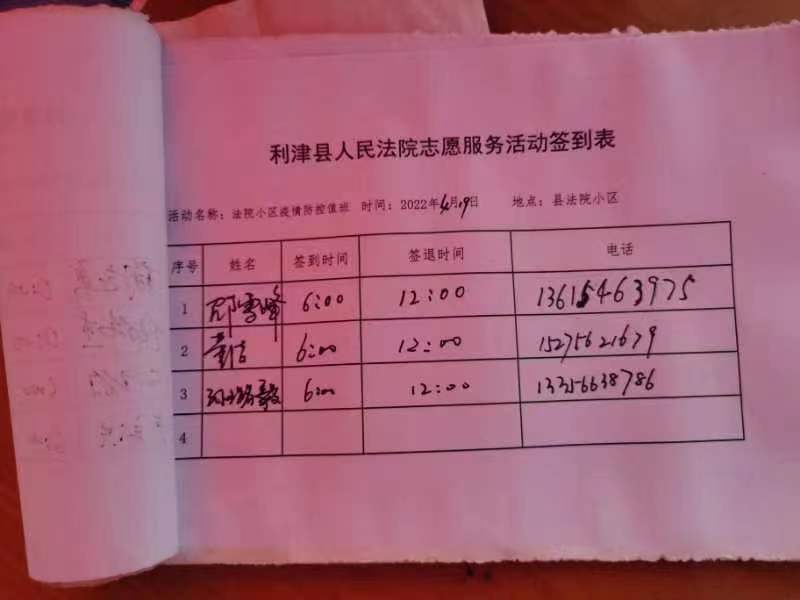 利津县人民法院志愿服务活动签到表
活动名称：法院小区疫情防控值班 时间：2022年4月19日 地点：县法院小区
序号 姓名 签到时间 签退时间 电话
1 邱雪峰 6:00 12:00 13615463975
2 6:00 12:00 15275621679
3 6:00 12:00 13356638786
4